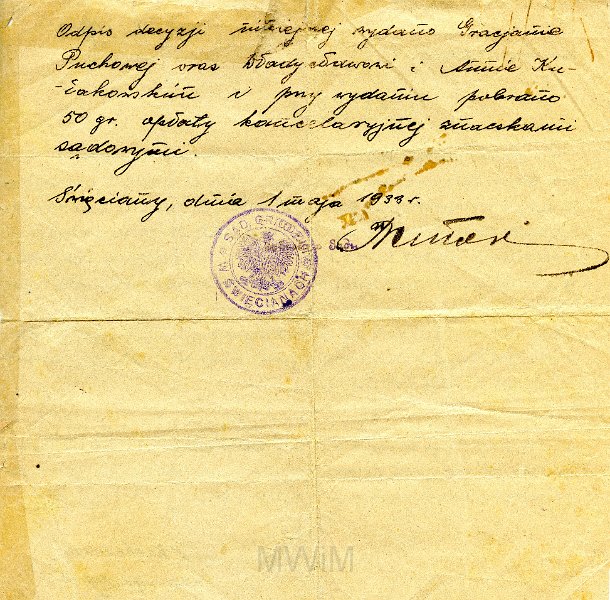 Odpis decyzji niniejszej wydano Gracjanie
Puchowej oraz Władysławowi i Annie Ku-
-żakowskim i przy wydaniu pobrano
50 gr. opłaty kancelaryjnej znaczkami
sądowymi.
Święciany, dnia 1 maja 1933 r.
SĄD GRODZKI
W ŚWIĘCIANACH
MWiM